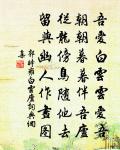 吾愛白雲雲愛吾
朝朝暮暮伴吾廬
從龍傍鳥隨他去
留與幽人作畫圖
郭
白雲廬詞
集